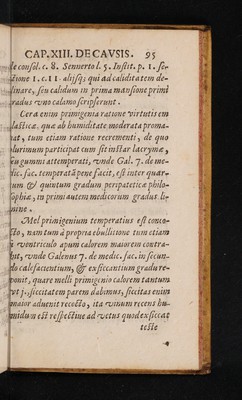 CAP. XIII. DE CAVSIS. 95
de consol. c. 8. Sennerto l. 5. Instit. p. 1. se-
ctione 1. c. 11. alijsq; qui ad caliditatem de-
clinare, seu calidum in prima mansione primi
gradus vno calamo scripserunt.
Cera enim primigenia ratione virtutis em
plasticæ, quæ ab humiditate moderata proma-
nat, tum etiam ratione recrementi, de quo
plurimum participat cum sit instar lacrymæ,
seu gummi attemperati, vnde Gal. 7. de me-
dic. fac. temperatā pene facit, est inter quar-
tum & quintum gradum peripateticæ philo-
sophiæ, in primi autem medicorum gradus li-
mine.
Mel primigenium temperatius est conco-
cto, nam tum à propria ebullitione tum etiam
à ventriculo apum calorem maiorem contra-
hit, vnde Galenus 7. de medic. fac. in secun-
do calefacientium, & exsiccantium gradu re-
ponit, quare melli primigenio calorem tantum
vt j. siccitatem parem dabimus, siccitas enim
maior aduenit recocto, ita vinum recens hu-
midum est respectiue ad vetus quod exsiccat
teste